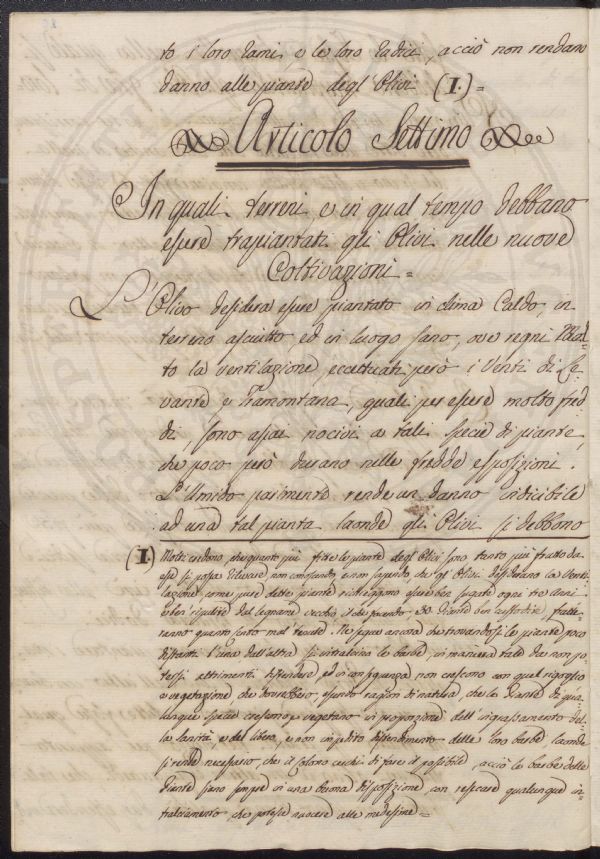 to i loro Rami, e le loro Radici, acciò non rendano
danno alle piante degl'Olivi (I.)=
Articolo Settimo
In quali terreni e in qual tempo debbano
essere trapiantati gli Olivi nelle nuove
Coltivazioni=
L'Olivo desidera essere piantato in clima Caldo, in
terreno asciutto ed in luogo sano, ove regni Mol-
to la ventilazione, eccettuati però i Venti di Le-
vante, e Tramontana, quali per essere molto fred-
di, sono assai nocivi a tali specie di piante,
che poco però durano nelle fredde esposizioni.
L'Umido parimente rende un danno indicibile
ad una tal pianta laonde gli Olivi si debbono
(I.) Molti credono, che quanto più fitte le piante degl'Olivi sono tanto più frutto da
esse si possa ricavare non conoscendo, e non sapendo che gl'Olivi desiderano la Venti-
lazione, come pure dette piante richieggono essere ben
e ben ripulite dal legname vecchio, il che facendo, 30. Piante ben custodite, frutte-
ranno quanto cento mal tenute. Ne segue ancora che trovandosi le piante poco
distanti l'una dall'altra si intralciano le barbe, in maniera tale da non po-
tersi altrimenti distendere, ed in conseguenza non crescono con quel rigoglio
e vegetazione che dovrebbero, essendo ragion di natura, che le Piante di qua-
lunque specie crescono, e vegetano in proporzione dell'ingrassamento del-
la sanità, e del libero, e non impedito distendimento delle loro barbe, laonde
si rende necessario, che il Colono cerchi di fare il possibile, acciò le barbe delle
Piante siano sempre in una buona disposizione, con resecare qualunque in-
tralciamento che potesse nuocere alle medesime=